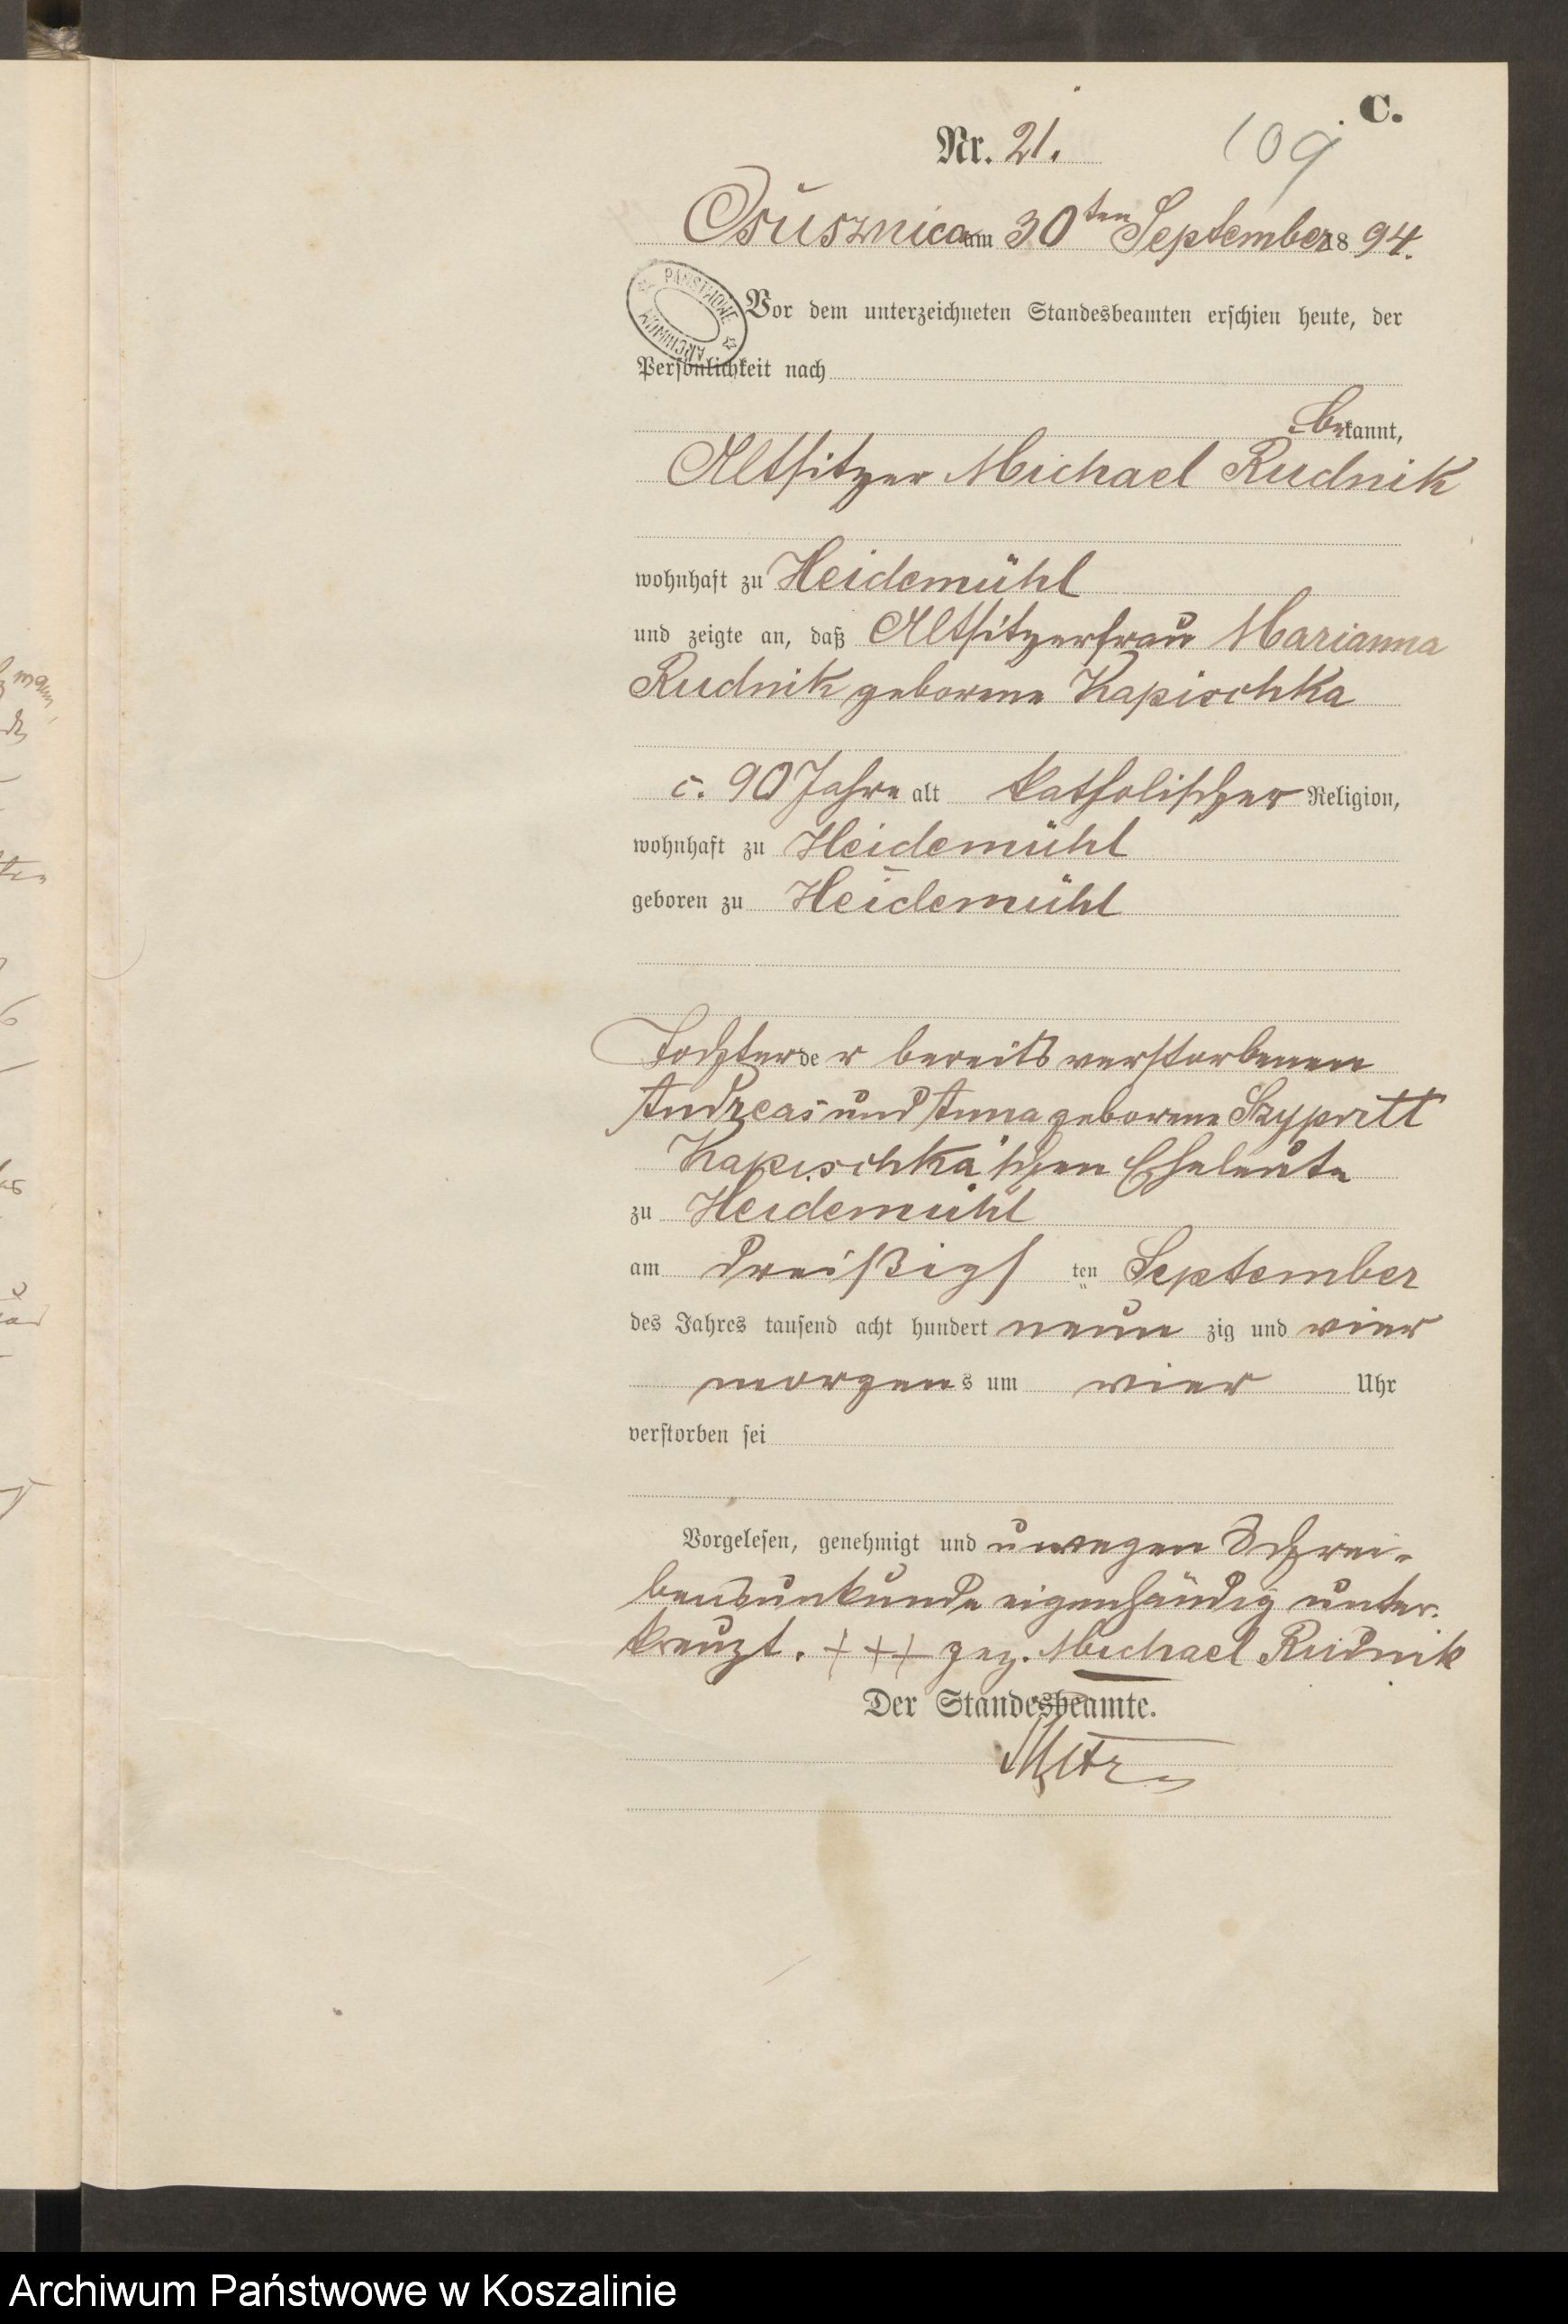 C.
Nr. 21.
109
Osusznica am 30ten September 1894.
PAŃSTWOWE ARCHIWUM
Vor dem unterzeichneten Standesbeamten erschien heute, der
Persönlichkeit nach
bekannt,
Altsitzer Michael Rudnik
wohnhaft zu Heidemühl
und zeigte an, daß Altsitzerfrau Marianna
Rudnik geborene Kapischka
c. 90 Jahre alt katholischer Religion,
wohnhaft zu Heidemühl
geboren zu Heidemühl
Tochter der bereits verstorbenen
Andreas und Anna geborene
Kapischka'schen Eheleute
zu Heidemühl
am dreißigsten September
des Jahres tausend acht hundert neunzig und vier
morgens um vier Uhr
verstorben sei
Vorgelesen, genehmigt und u wegen Schrei-
bensunkunde eigenhändig unter-
kreuzt. +++ gez. Michael Rudnik
Der Standesbeamte.
Archiwum Państwowe w Koszalinie